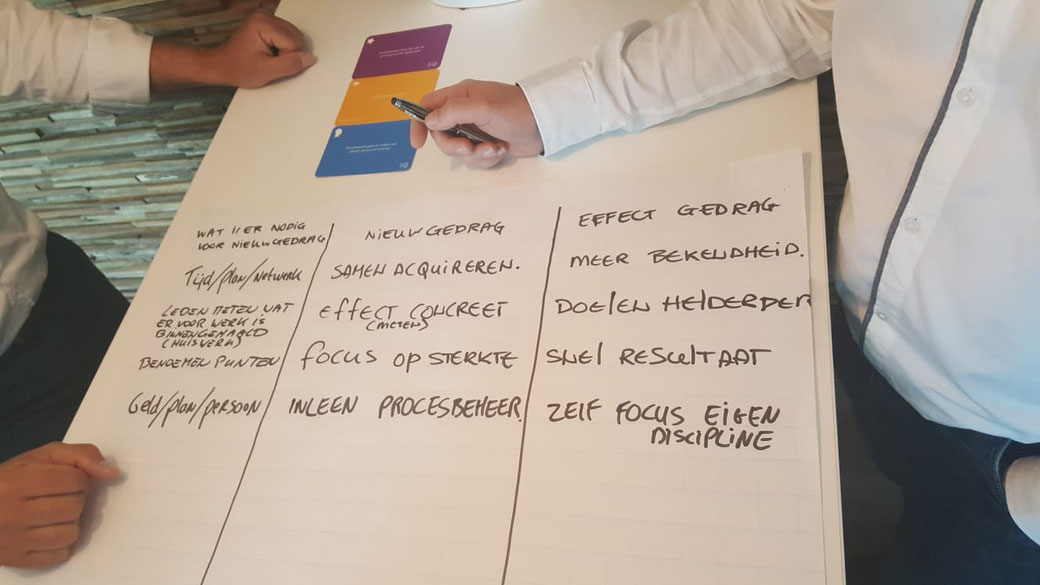 WAT IS ER NODIG
VOOR NIEUW GEDRAG
Tijd/plan/netwerk
LEDEN METEN WAT
ER VOOR WERK IS
BINNENGEHAALD
(HUISWERK)
BENOEMEN PUNTEN
Geld/plan/persoon
NIEUW GEDRAG
SAMEN ACQUIREREN.
EFFECT CONCREET
(METEN)
FOCUS OP STERKTE
INLEEN PROCESBEHEER.
EFFECT GEDRAG
MEER BEKENDHEID.
DOELEN HELDERDER
SNEL RESULTAAT
ZELF FOCUS EIGEN
DISCIPLINE